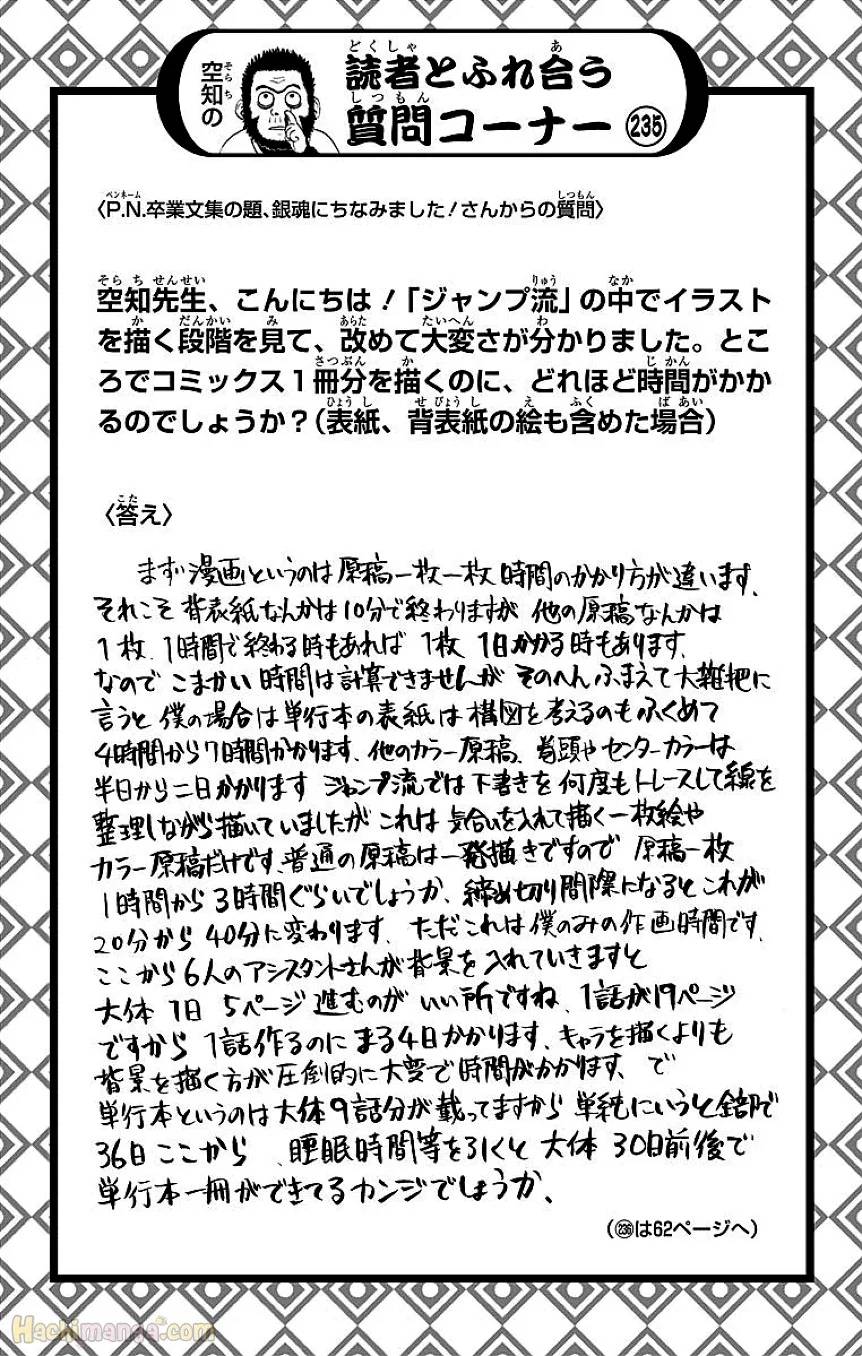 空知の
読者とふれ合う
質問コーナー 235
〈P.N.卒業文集の題、銀魂にちなみました!さんからの質問〉
空知先生、こんにちは!「ジャンプ流」の中でイラスト
を描く段階を見て、改めて大変さが分かりました。とこ
ろでコミックス1冊分を描くのに、どれほど時間がかか
るのでしょうか?(表紙、背表紙の絵も含めた場合)
〈答え〉
まず漫画というのは原稿一枚一枚時間のかかり方が違います、
それこそ背表紙なんかは10分で終わりますが 他の原稿なんかは
1枚、1時間で終わる時もあれば 1枚 1日かかる時もあります、
なので こまかい時間は計算できませんが そのへんふまえて大雑把に
言うと 僕の場合は単行本の表紙は構図を考えるのもふくめて
4時間から7時間かかります、他のカラー原稿、巻頭やセンターカラーは
半日から二日かかります ジャンプ流では下書きを何度もトレースして線を
整理しながら描いていましたが これは 気合いを入れて描く一枚絵や
カラー原稿だけです、普通の原稿は一発描きですので 原稿一枚
1時間から3時間ぐらいでしょうか、締め切り間際になるとこれが
20分から40分に変わります、ただこれは僕のみの作画時間です、
ここから6人のアシスタントさんが背景を入れていきますと
大体1日 5ページ進むのが いい所ですね、1話が19ページ
ですから 1話作るのにまる4日かかります、キャラを描くよりも
背景を描く方が圧倒的に大変で時間がかかります、で
単行本というのは大体9話分が載ってますから 単純にいうと全部で
36日ここから 、睡眠時間等を引くと 大体 30日前後で
単行本一冊ができてるカンジでしょうか、
(236は62ページへ)
Hachimanga.com!